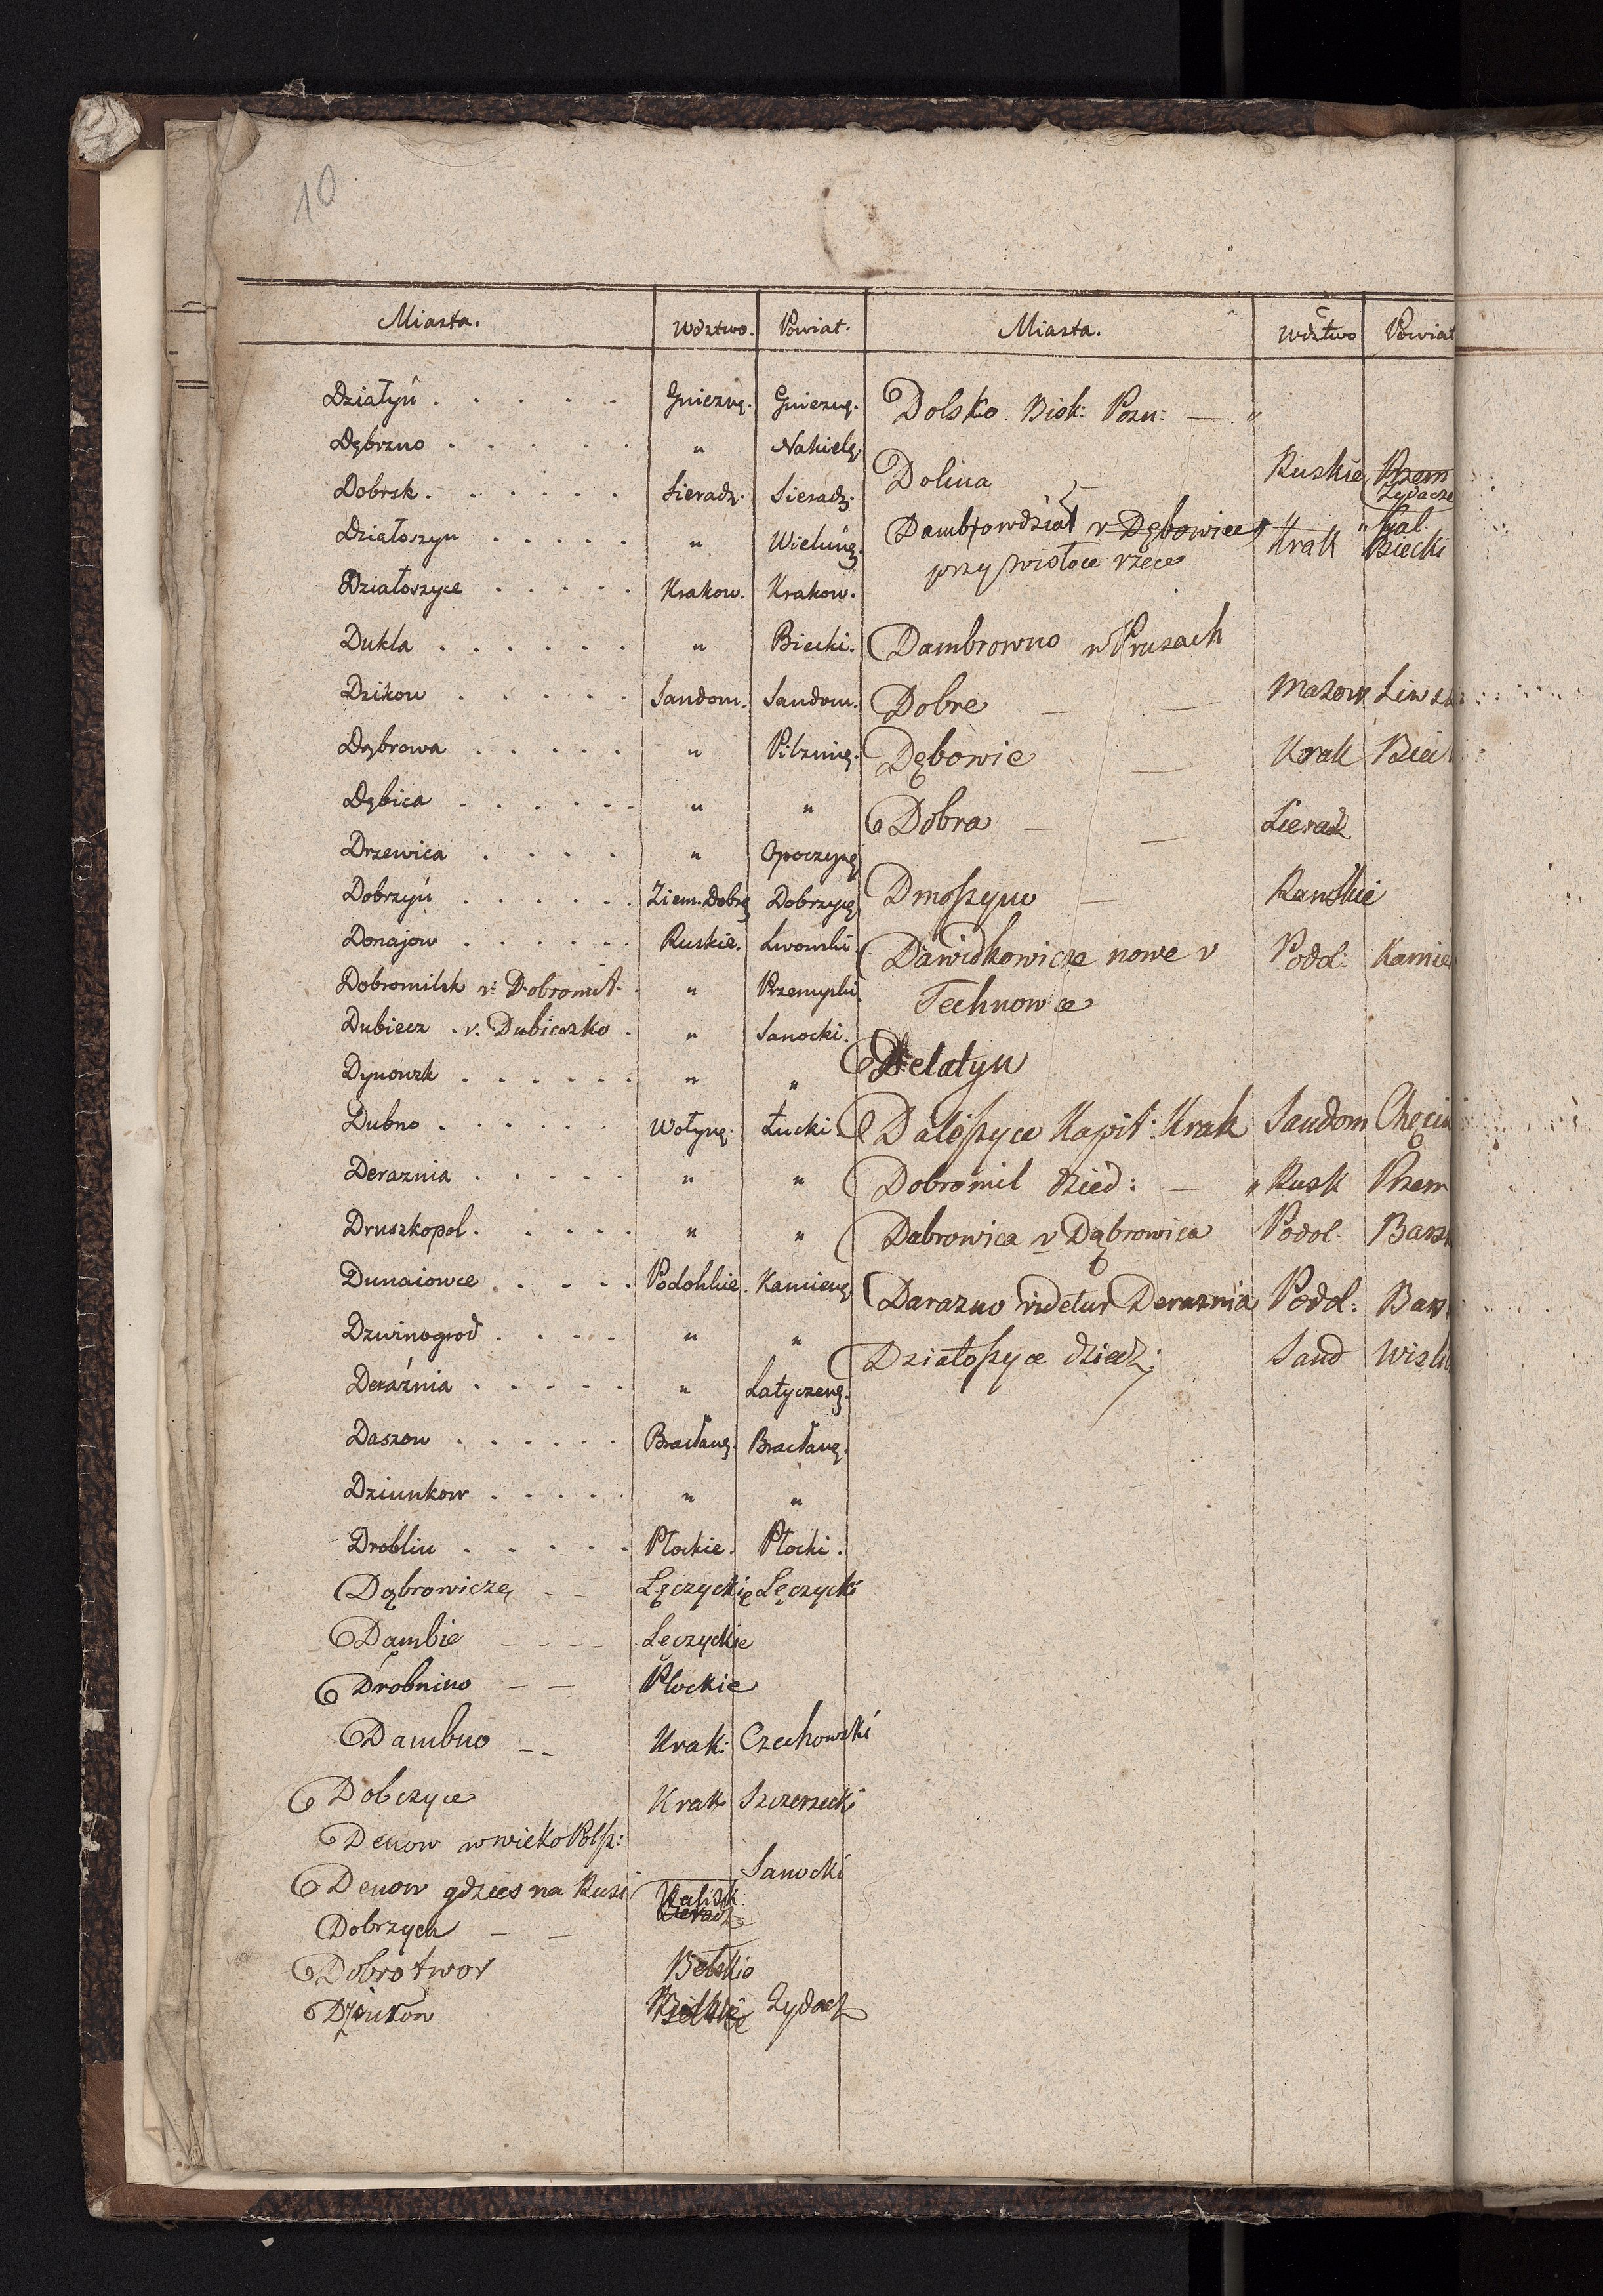 10
Miasta. Wdztwo. Powiat.
Działyń . . . . . Gniezng. Gniezng.
Dębrzno . . . . . " Nakielg.
Dobrsk . . . . . . Sieradz. Sieradz.
Działoszyn . . . . . " Wieluńg.
Działoszyce . . . . . Krakow. Krakow.
Dukla . . . . . . " Biecki.
Dzikow . . . . . . Sandom. Sandom.
Dąbrowa . . . . . " Pilznieg.
Dębica . . . . . . " "
Drzewica . . . . " Opoczyng
Dobrzyń . . . . . . Ziem. Dobrz Dobrzyńg
Donajow . . . . . . Ruskie. Lwowski.
Dobromilsk v: Dobromil . " Przemyski.
Dubiecz . v. Dubieczko . " Sanocki.
Dynowsk . . . . . . " "
Dubno . . . . . . Wołyng. Łucki.
Deraznia . . . . . " "
Druszkopol . . . . . " "
Dunaiowce . . . . . Podolskie. Kamieng
Dzwinogrod . . . . " "
Deraźnia . . . . . " Latyczewg.
Daszow . . . . . . Bracławg. Bracławg.
Dziunkow . . . . . " "
Droblin . . . . . Płockie. Płocki.
Dąbrowicze - - Łęczyckie Łęczycki
Dąmbie - - - - Łęczyckie
Drobnino - - Płockie
Dambno - - Krak: Czchowski
Dobczyce Krak Szczerzecki
Denow w wielko Polsz:
Denow gdzies na Rusi Sanocki
Dobrzyca - - Kalisk. Sieradz
Dobrotwor Bełskie
Dziukow Zydacz
Miasta. Wdztwo Powiat
Dolsko Bisk: Pozn: — "
Dolina — Ruskie Przem Zydacze
" Hal
Dambrowdział v Dębowiec Krak Biecki
przy wisłoce rzece
Dambrowno w Prusach
Dobre — — Mazow Liwsk
Dębowie — Krak Biec
Dobra — — Sieradz
Dmoszyno — Rawskie
Dawidkowicze nowe v Podol: Kamie
Technowce
Delatyn
Daloszyce Kapit: Krak Sandom Chęcin
Dobromil dzied: — " Rusk Przem
Dabrowica v Dąbrowica Podol. Bars
Darazno videtur Deraznia Podol: Bars
Działoszyce dziedz: Sand Wisl